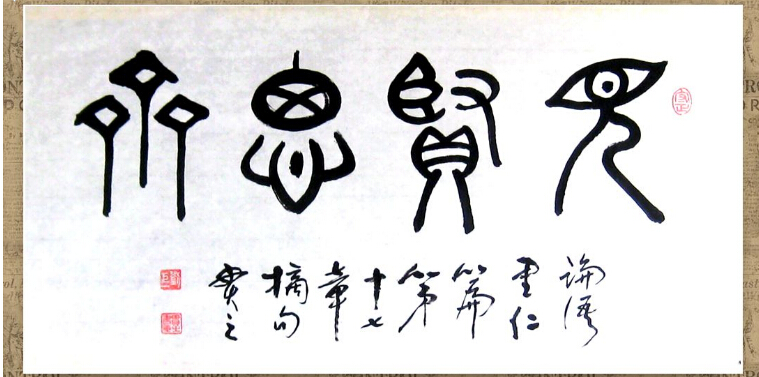 見賢思齊
論語
里仁
篇
第
十七
章
摘句